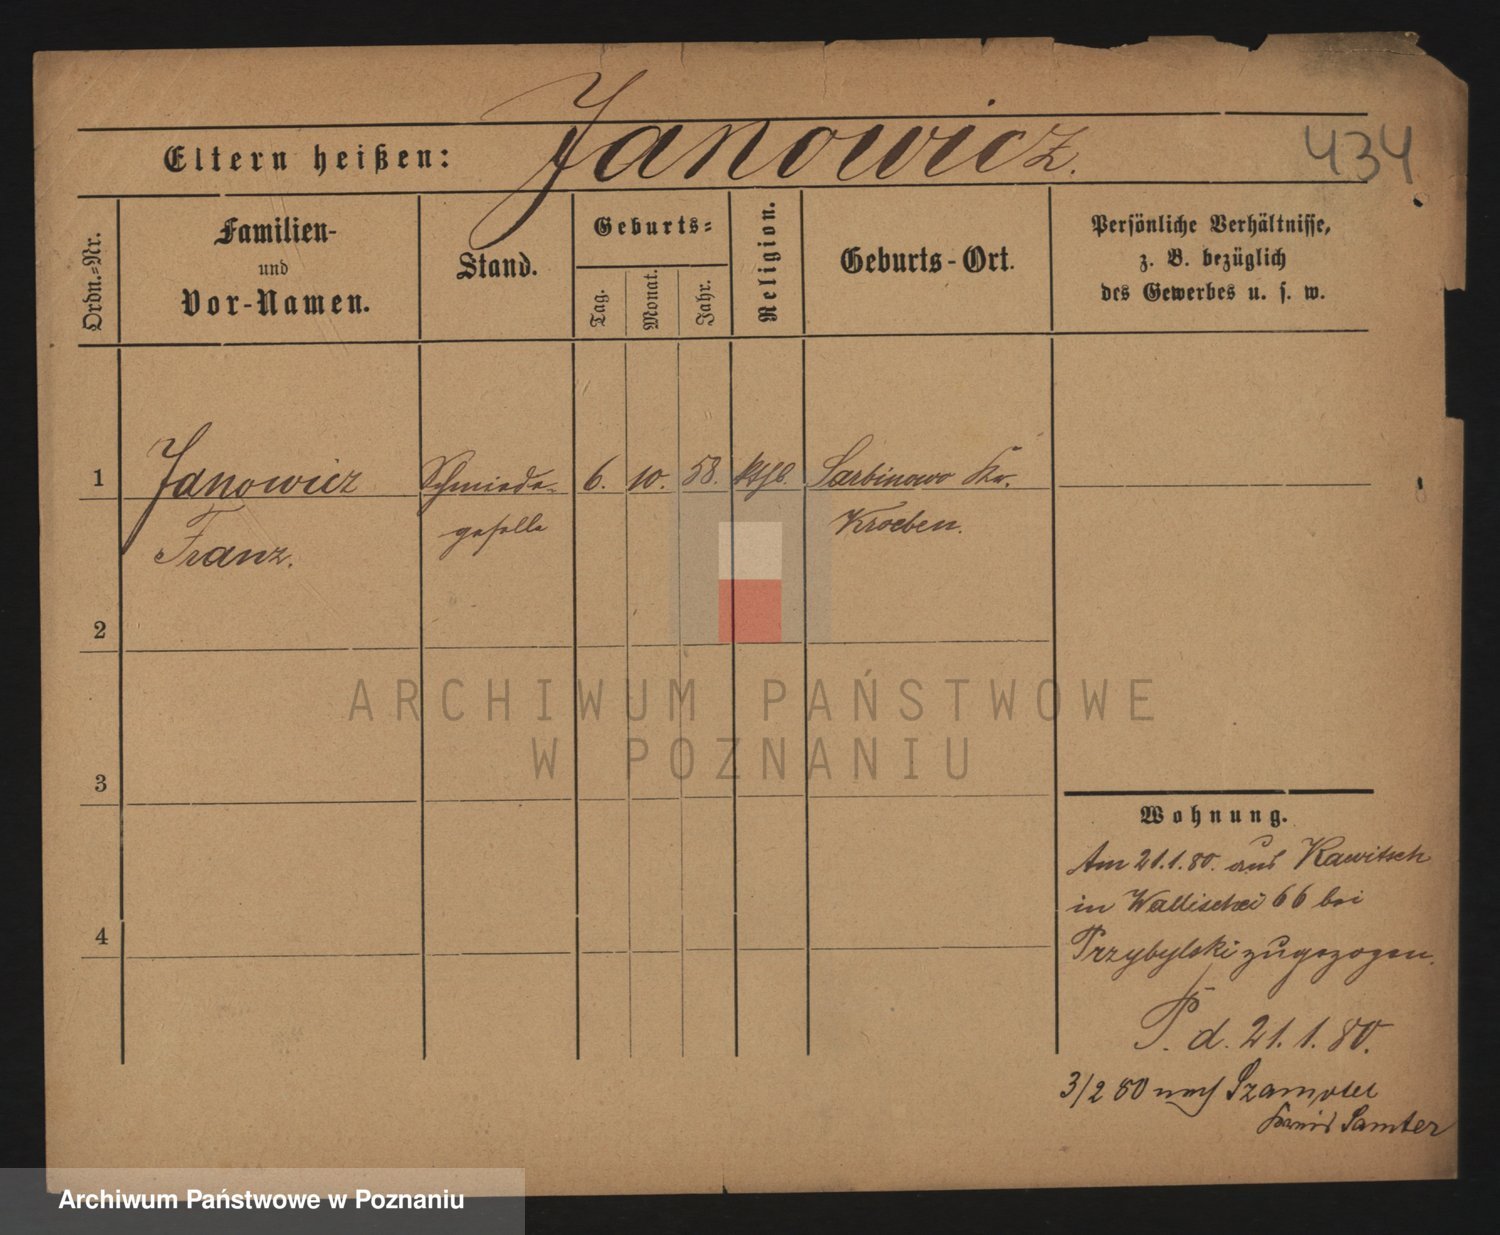 Eltern heißen: Janowicz.
434
Ordn.=Nr.
Familien-
und
Vor-Namen.
Stand.
Geburts=
Tag.
Monat.
Jahr.
Religion.
Geburts-Ort.
Persönliche Verhältnisse,
z. B. bezüglich
des Gewerbes u. s. w.
1 Janowicz Schmiede- 6. 10. 58. kthl. Sarbinowo Kr.
Franz. geselle Kroeben.
2
3
4
ARCHIWUM PAŃSTWOWE
W POZNANIU
Wohnung.
Am 21.1.80. aus Rawitsch
in Wallischei 66 bei
Przybylski zugezogen.
P. d. 21.1.80.
3/2 80 nach
Kreis Samter
Archiwum Państwowe w Poznaniu